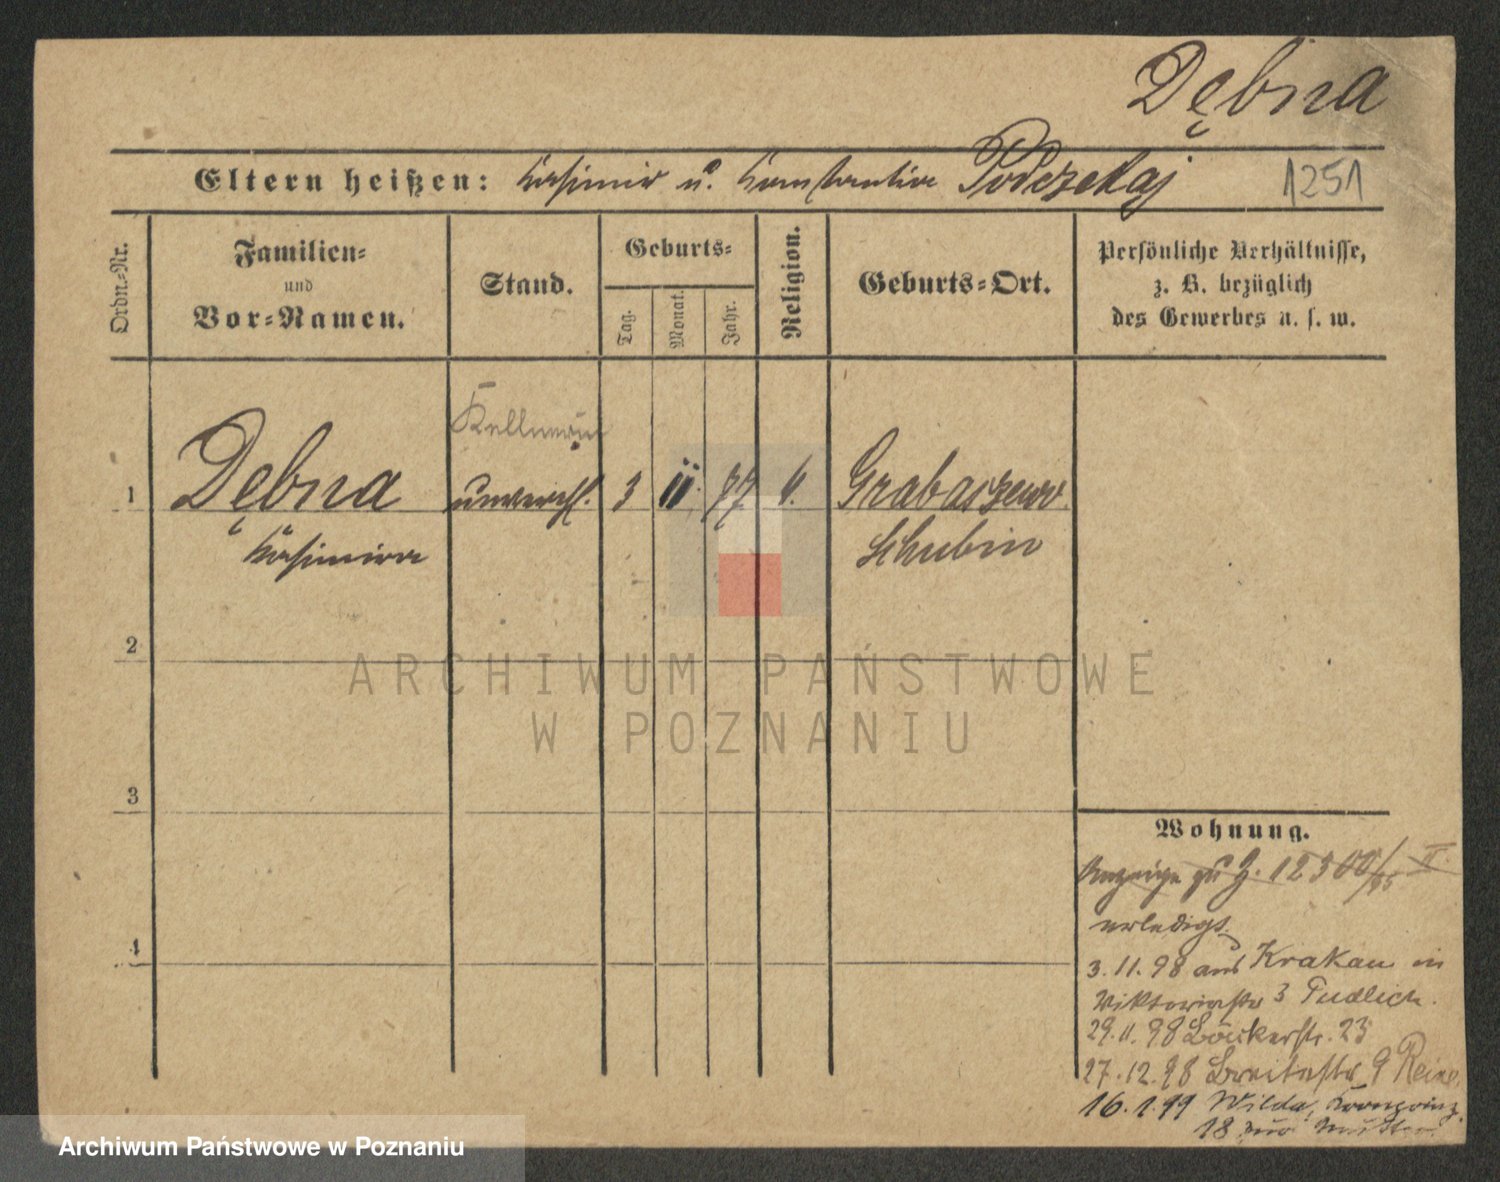 Dębna
Eltern heißen: Kasimir u. Konstantia Podczekaj
1251
Ordn.-Nr.
Familien-
und
Vor-Namen.
Stand.
Geburts-
Tag.
Monat.
Jahr.
Religion.
Geburts-Ort.
Persönliche Verhältnisse,
z. B. bezüglich
des Gewerbes u. s. w.
Kellnerin
1 Dębna unverehl. 3 11. 77 k. Grabaszewo
Kasimira Schubin
2
3
4
Wohnung.
Anzeige zu J. 12300/95 II.
erledigt
3.11.98 aus Krakau in
Viktoriastr 3 Pudlich.
29.11.98 Bäckerstr. 23
27.12.98 Breitestr 9
16.1.99 Wilda, Kronprinz.
18 zur Mutter
ARCHIWUM PAŃSTWOWE
W POZNANIU
Archiwum Państwowe w Poznaniu